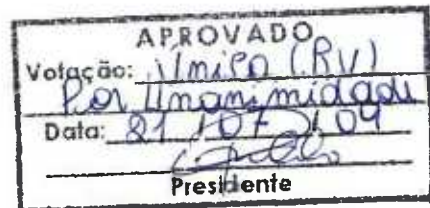 APROVADO
Votação: Único (RV)
Por Unanimidade
Data: 21 / 07 / 09
Presidente